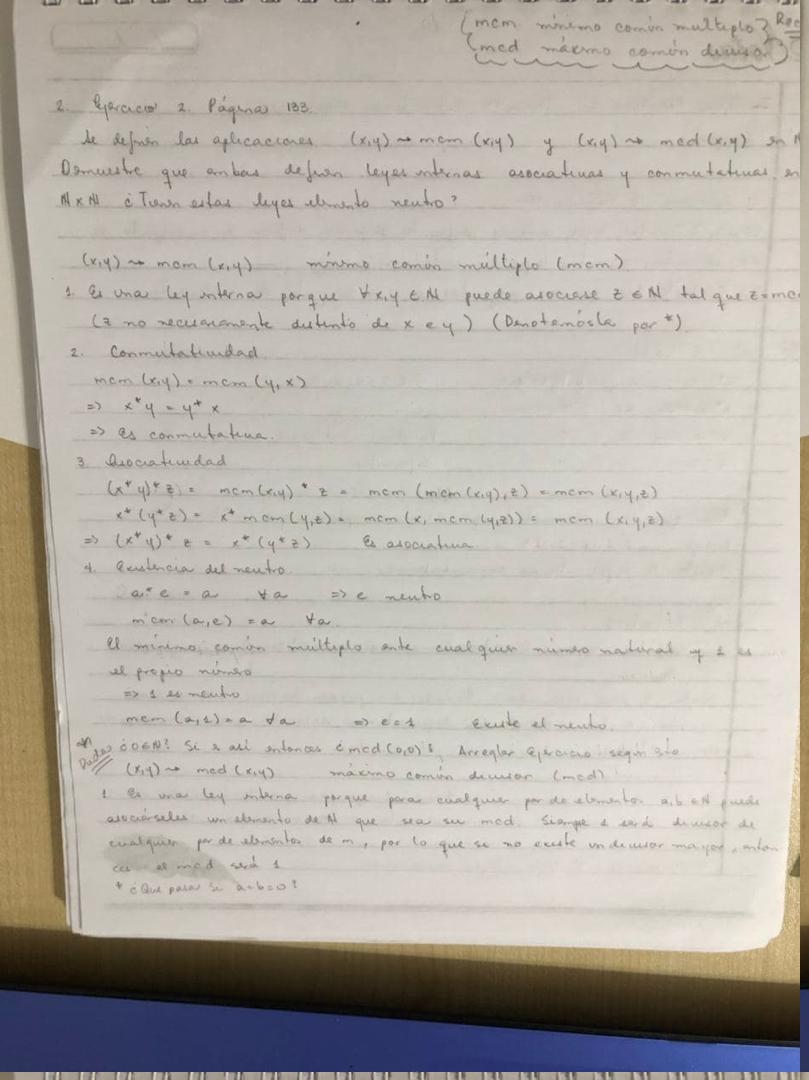 (mcm mínimo común multiplo) Rec
(mcd máximo común divisor)
2. Ejercicio 2. Página 133.
Se definen las aplicaciones (x,y) → mcm (x,y) y (x,y) → mcd (x,y) en N
Demuestre que ambas definen leyes internas asociativas y conmutativas en
N x N ¿Tienen estas leyes elemento neutro?
(x,y) → mcm (x,y) mínimo común múltiplo (mcm)
1. Es una ley interna porque ∀x,y ∈ N puede asociarse z ∈ N tal que z=mc
(z no necesariamente distinto de x e y) (Denotemósla por *)
2. Conmutatividad
mcm (x,y) = mcm (y,x)
=> x*y = y*x
=> Es conmutativa.
3. Asociatividad
(x*y)*z = mcm(x,y) * z = mcm (mcm (x,y),z) = mcm (x,y,z)
x*(y*z) = x* mcm (y,z) = mcm (x, mcm (y,z)) = mcm (x,y,z)
=> (x*y)*z = x*(y*z) Es asociativa
4. Existencia del neutro
a*e = a ∀a => e neutro
mcm (a,e) = a ∀a.
El mínimo común múltiplo ente cualquier número natural y 1 es
el propio número
=> 1 es neutro
mcm (a,1) = a ∀a => e=1 Existe el neutro.
Dudas ¿0∈N? Si es así entonces ¿mcd (0,0)? Arreglar Ejercicio según esto
(x,y) → mcd (x,y) máximo común divisor (mcd)
1 Es una ley interna porque para cualquier par de elementos a,b ∈ N puede
asociárseles un elemento de N que sea su mcd. Siempre 1 será divisor de
cualquier par de elementos de m, por lo que si no existe un divisor mayor, enton
ces el mcd será 1
* ¿Que pasa si a=b=0?